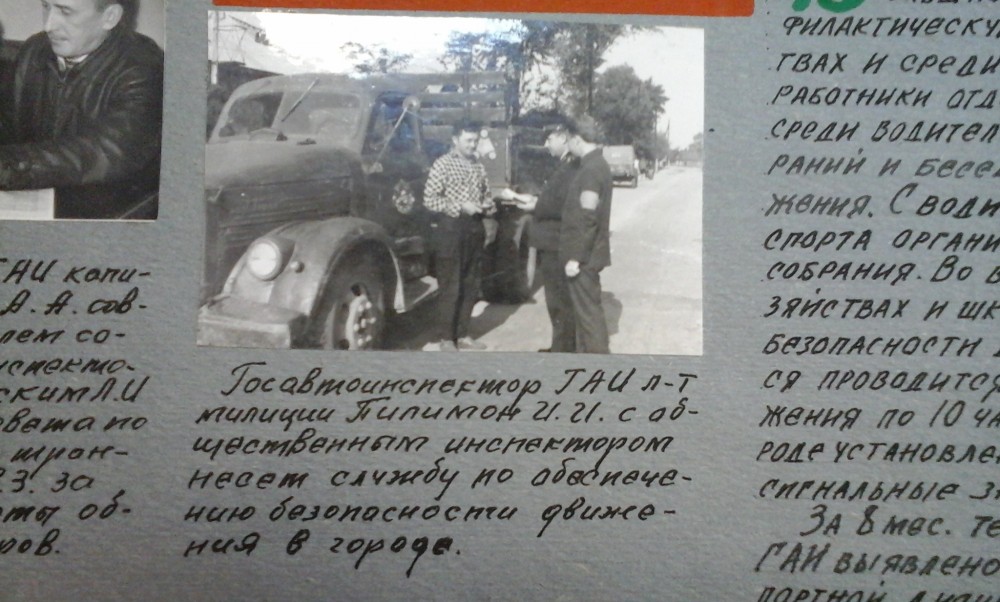 ГАИ капи-
А. А. сов-
лем со-
нспекто-
ским Л.И
овета по
тран-
23. за
оты об-
ров.
Госавтоинспектор ГАИ л-т
милиции Пилимон И. И. с об-
щественным инспектором
несет службу по обеспече-
нию безопасности движе-
ния в городе.
филактическу
твах и среди
работники отд
среди водител
раний и бесе
жения. С води
спорта органи
собрания. Во в
зяйствах и шк
безопасности
ся проводится
жения по 10 ча
роде установле
сигнальные з
За 8 мес. те
ГАИ выявлено
портной